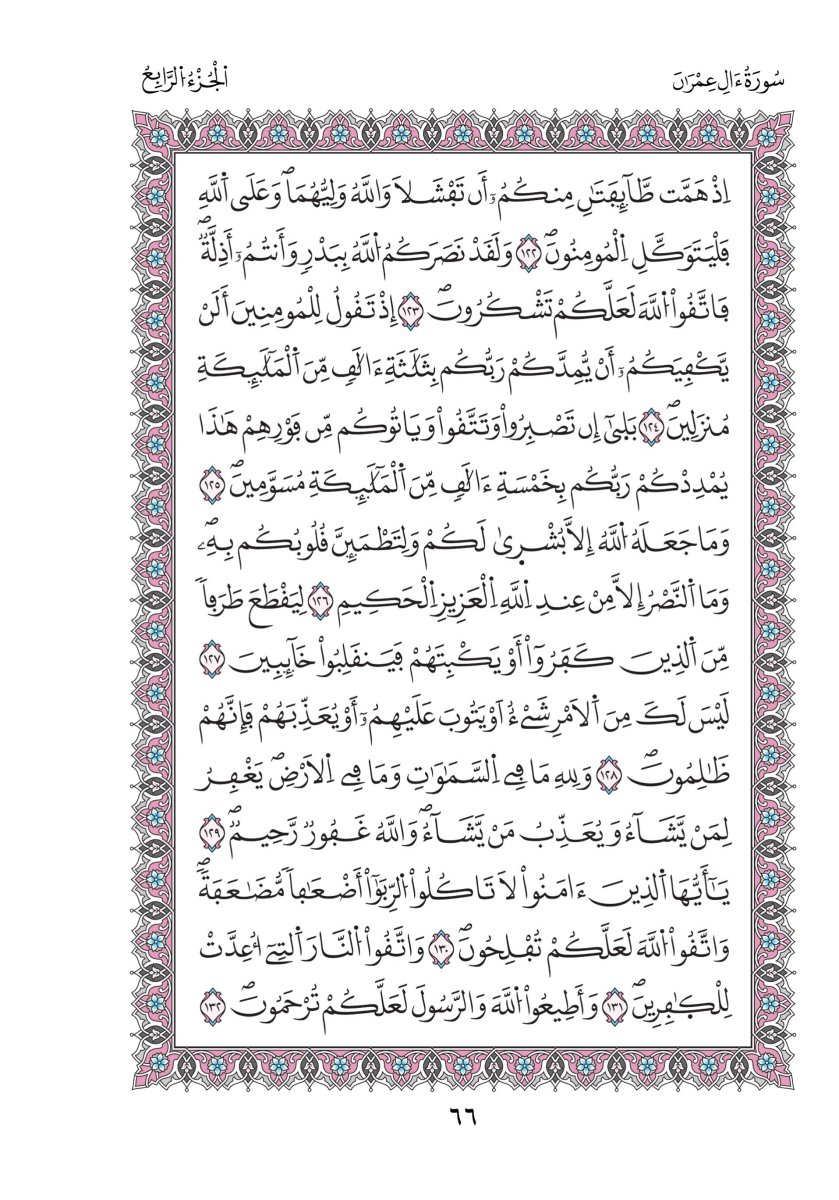 سُورَةُ ءَالِ عِمْرَٰنَ
اَلْجُزْءُ اُلرَّابِعُ
إِذْ هَمَّت طَّآئِفَتَٰنِ مِنكُمُۥٓ أَن تَفْشَلَا وَاللَّهُ وَلِيُّهُمَاۖ وَعَلَى اَللَّهِ
فَلْيَتَوَكَّلِ اِلْمُومِنُونَۖ ١٢٢ وَلَقَدْ نَصَرَكُمُ اُللَّهُ بِبَدْرٖ وَأَنتُمُۥٓ أَذِلَّةٞۖ
فَاتَّقُواْ اُللَّهَ لَعَلَّكُمْ تَشْكُرُونَۖ ١٢٣ إِذْ تَقُولُ لِلْمُومِنِينَ أَلَنْ
يَّكْفِيَكُمُۥٓ أَنْ يُّمِدَّكُمْ رَبُّكُم بِثَلَٰثَةِ ءَالَٰفٖ مِّنَ اَلْمَلَٰٓئِكَةِ
مُنزَلِينَۖ ١٢٤ بَلَىٰٓ إِن تَصْبِرُواْ وَتَتَّقُواْ وَيَاتُوكُم مِّن فَوْرِهِمْ هَٰذَا
يُمْدِدْكُمْ رَبُّكُم بِخَمْسَةِ ءَالَٰفٖ مِّنَ اَلْمَلَٰٓئِكَةِ مُسَوَّمِينَۖ ١٢٥
وَمَا جَعَلَهُ اُللَّهُ إِلَّا بُشْرِىٰ لَكُمْ وَلِتَطْمَئِنَّ قُلُوبُكُم بِهِۦۖ
وَمَا اَلنَّصْرُ إِلَّا مِنْ عِندِ اِللَّهِ اِلْعَزِيزِ اِلْحَكِيمِ ١٢٦ لِيَقْطَعَ طَرَفاٗ
مِّنَ اَلذِينَ كَفَرُوٓاْ أَوْ يَكْبِتَهُمْ فَيَنقَلِبُواْ خَآئِبِينَ ١٢٧
لَيْسَ لَكَ مِنَ اَلَامْرِ شَےْءٌ اَوْ يَتُوبَ عَلَيْهِمُۥٓ أَوْ يُعَذِّبَهُمْ فَإِنَّهُمْ
ظَٰلِمُونَۖ ١٢٨ وَلِلهِ مَا فِے اِلسَّمَٰوَٰتِ وَمَا فِے اِلَارْضِۖ يَغْفِرُ
لِمَنْ يَّشَآءُ وَيُعَذِّبُ مَنْ يَّشَآءُۖ وَاللَّهُ غَفُورٞ رَّحِيمٞۖ ١٢٩
يَٰٓأَيُّهَا اَلذِينَ ءَامَنُواْ لَا تَاكُلُواْ اُلرِّبَوٰٓاْ أَضْعَٰفاٗ مُّضَٰعَفَةٗۖ
وَاتَّقُواْ اُللَّهَ لَعَلَّكُمْ تُفْلِحُونَۖ ١٣٠ وَاتَّقُواْ اُلنَّارَ اَلتِےٓ أُعِدَّتْ
لِلْكٰفِرِينَۖ ١٣١ وَأَطِيعُواْ اُللَّهَ وَالرَّسُولَ لَعَلَّكُمْ تُرْحَمُونَۖ ١٣٢
٦٦